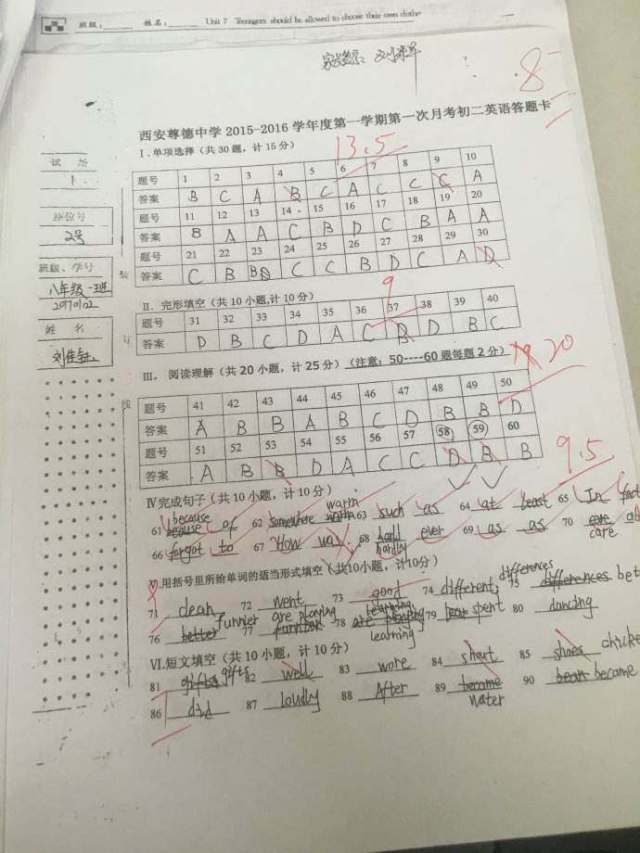 班级: 姓名: Unit 7 Teenagers should be allowed to choose their own clothe
8
西安尊德中学 2015-2016 学年度第一学期第一次月考初二英语答题卡
Ⅰ.单项选择(共 30 题, 计 15 分)
13.5
题号 1 2 3 4 5 6 7 8 9 10
答案 B C A B C A C C C A
题号 11 12 13 14 15 16 17 18 19 20
答案 B A A C B D C B A A
题号 21 22 23 24 25 26 27 28 29 30
答案 C B C C B D C A D
试 场
1
座位号
2号
班级、学号
八年级一班
姓 名
Ⅱ. 完形填空(共 10 小题,计 10 分)
9
题号 31 32 33 34 35 36 37 38 39 40
答案 D B C D A C B D B C
Ⅲ. 阅读理解(共 20 小题, 计 25 分)(注意: 50----60 题每题 2 分)
20
题号 41 42 43 44 45 46 47 48 49 50
答案 A B B A B C D B B D
题号 51 52 53 54 55 56 57 58 59 60
答案 A B B D A C C D B B
Ⅳ完成句子(共 10 小题, 计 10 分)
9.5
61 because of 62 Somewhere warm 63 such as 64 at least 65 In fact
66 forgot to 67 How was 68 hardly ever 69 as as 70 care
Ⅴ.用括号里所给单词的适当形式填空(共10小题, 计10分)
71 clean 72 went 73 good 74 different 75 differences
76 better 77 funnier 78 learning 79 spent 80 dancing
Ⅵ.短文填空(共 10 小题, 计 10 分)
81 gifts 82 well 83 wore 84 short 85 shoes
86 did 87 loudly 88 After 89 water 90 became